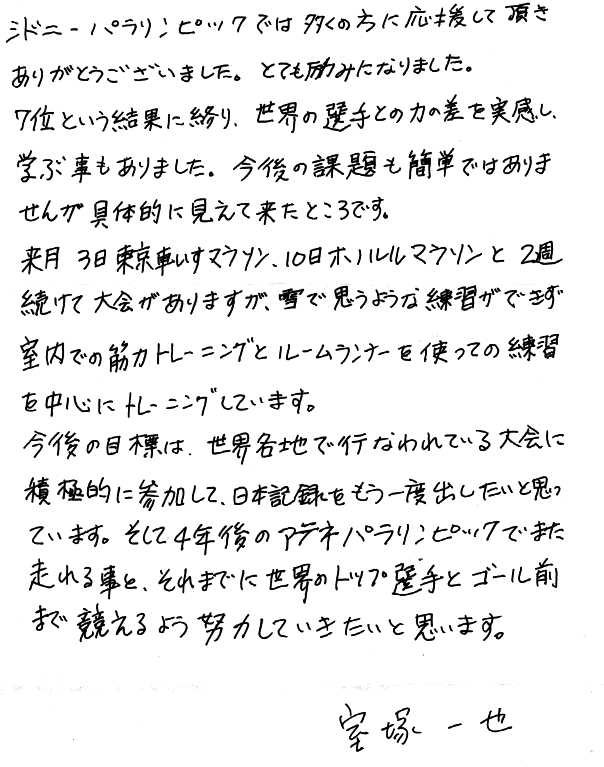 シドニーパラリンピックでは多くの方に応援して頂き
ありがとうございました。とても励みになりました。
7位という結果に終り、世界の選手との力の差を実感し、
学ぶ事もありました。今後の課題も簡単ではありま
せんが具体的に見えて来たところです。
来月3日東京車いすマラソン、10日ホノルルマラソンと2週
続けて大会がありますが、雪で思うような練習ができず
室内での筋力トレーニングとルームランナーを使っての練習
を中心にトレーニングしています。
今後の目標は、世界各地で行なわれている大会に
積極的に参加して、日本記録をもう一度出したいと思っ
ています。そして4年後のアテネパラリンピックでまた
走れる事と、それまでに世界のトップ選手とゴール前
まで競えるよう努力していきたいと思います。
室塚一也